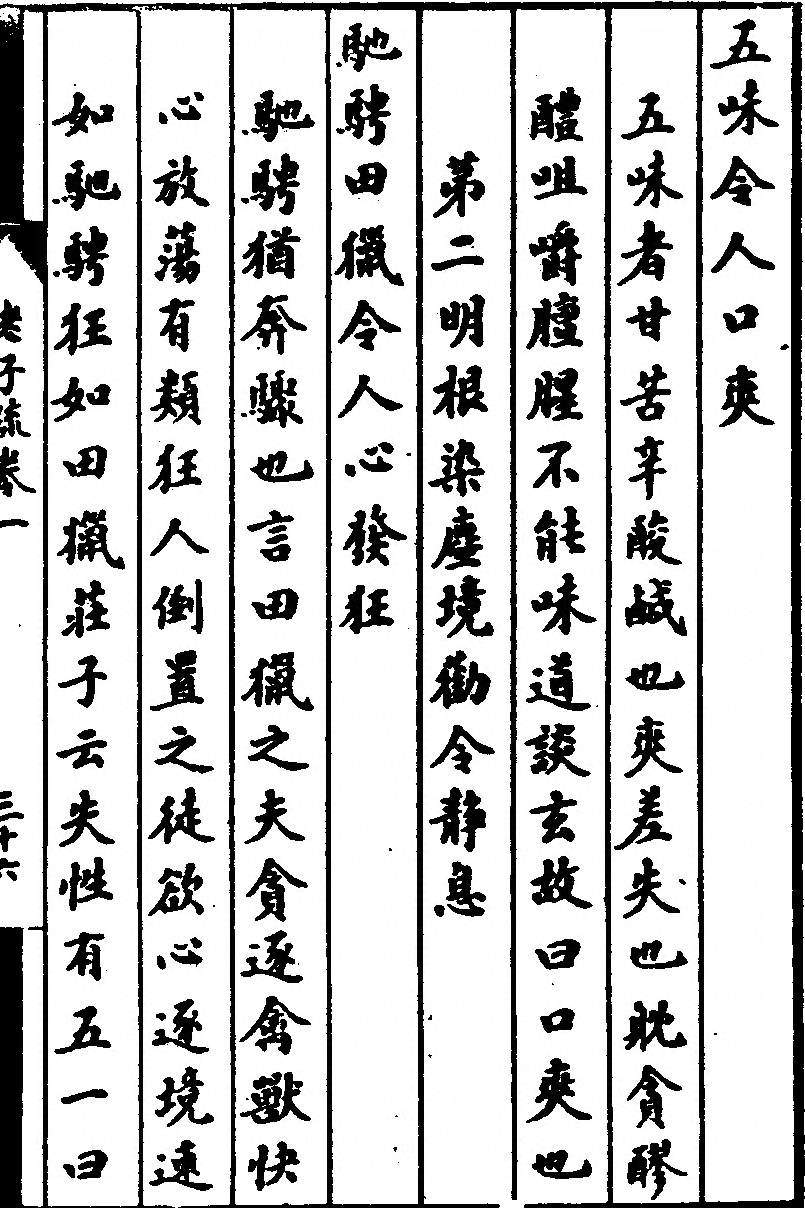 五味令人口爽
五味者甘苦辛酸鹹也爽差失也躭貪醪
醴咀嚼膻腥不能味道談玄故曰口爽也
第二明根染塵境勸令靜息
馳騁田獵令人心發狂
馳騁猶奔驟也言田獵之夫貪逐禽獸快
心放蕩有類狂人倒置之徒欲心逐境速
如馳騁狂如田獵莊子云失性有五一曰
老子疏卷一
三十六